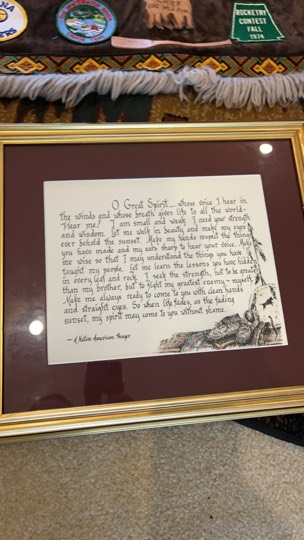 ROCKETRY
CONTEST
FALL
1974
O Great Spirit... whose voice I hear in
the winds and whose breath gives life to all the world-
Hear me! I am small and weak. I need your strength
and wisdom. Let me walk in beauty and make my eyes
ever behold the sunset. Make my hands respect the things
you have made and my ears sharp to hear your voice. Make
me wise so that I may understand the things you have
taught my people. Let me learn the lessons you have hidden
in every leaf and rock. I seek the strength, not to be greater
than my brother, but to fight my greatest enemy - myself.
Make me always ready to come to you with clean hands
and straight eyes. So when life fades, as the fading
sunset, my spirit may come to you without shame.
- A Native American Prayer